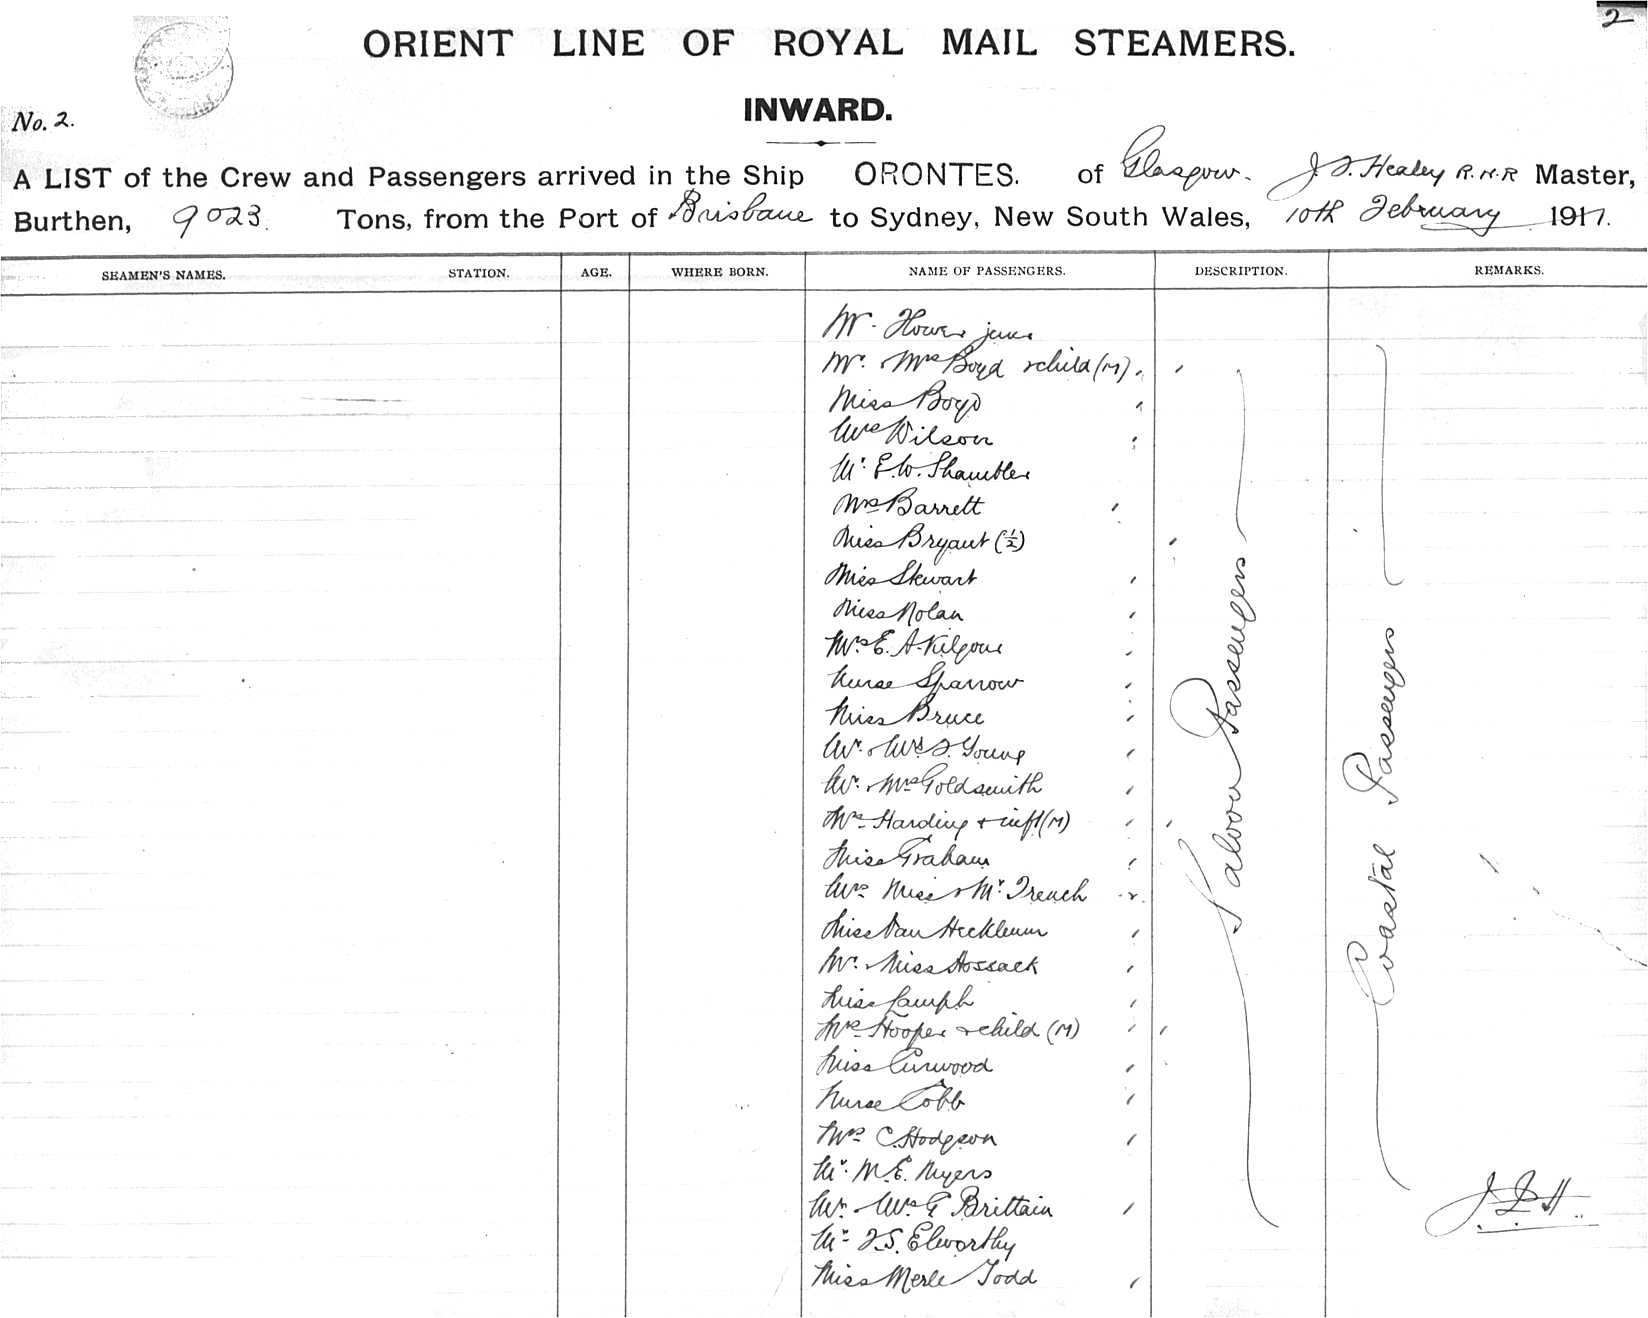 2
ORIENT LINE OF ROYAL MAIL STEAMERS.
INWARD.
No. 2.
A LIST of the Crew and Passengers arrived in the Ship ORONTES. of Glasgow. J. F. Healey R.N.R Master,
Burthen, 9023. Tons, from the Port of Brisbane to Sydney, New South Wales, 10th February 1917.
SEAMEN'S NAMES. STATION. AGE. WHERE BORN. NAME OF PASSENGERS. DESCRIPTION. REMARKS.
Mr. Howes junr
Mr. Mrs Boyd & child (M)
Miss Boyd
Mrs Wilson
Mr. E.W. Shambler
Mrs Barrett
Miss Bryant (½)
Miss Stewart
Miss Nolan
Mrs E. A. Kilgour
Nurse Sparrow
Miss Bruce
Mr. & Mrs F. Young
Mr. & Mrs Goldsmith
Mrs Harding & inft (M)
Miss Graham
Mrs Miss & Mr. French
Miss Van
Mr. & Miss Hossack
Miss
Mrs Hooper & child (M)
Miss Curwood
Nurse Cobb
Mrs C. Hodgson
Mr. M.E. Myers
Mr. & Mrs G Brittain
Mr. F.S. Elworthy
Miss Merle Todd
Saloon Passengers
Coastal Passengers
J F H